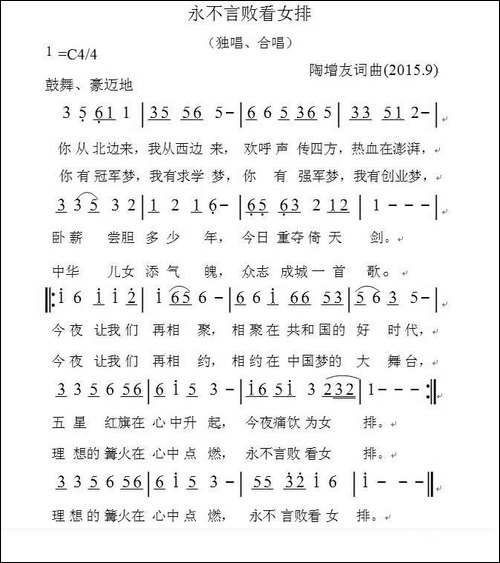 永不言败看女排
（独唱、合唱）
1=C4/4
陶增友词曲(2015.9)
鼓舞、豪迈地
3 5 61 1 | 35 56 5 - | 6 6 5 36 5 | 3 5 3 2 - |
你从北边来，我从西边来， 欢呼声 传四方，热血在澎湃，
你有冠军梦，我有求学 梦， 你 有 强军梦，我有创业梦，
3 3 5 3 2 | 1 2 1 6 - | 65 63 2 12 | 1 - - - |
卧薪 尝胆 多少 年， 今日 重夺倚 天 剑。
中华 儿女 添气 魄， 众志 成城一 首 歌。
‖: i 6 i i 2 | i 65 6 - | 6 i 66 66 53 | 5 6 3 5 - |
今夜 让我们 再相 聚， 相聚在 共和 国的 好 时代，
今夜 让我们 再相 约， 相约在 中国梦的 大 舞台，
3 3 5 6 56 | 6 i 5 3 - | i6 5i 3 232 | 1 - - - :‖
五星 红旗在 心中升 起， 今夜痛饮为女 排。
理想的篝火在 心中点 燃， 永不言败看女 排。
3 3 5 6 56 | 6 i 5 3 - | 55 32 i 6 | i - - - ‖
理想的篝火在 心中点 燃， 永不 言败看女 排。